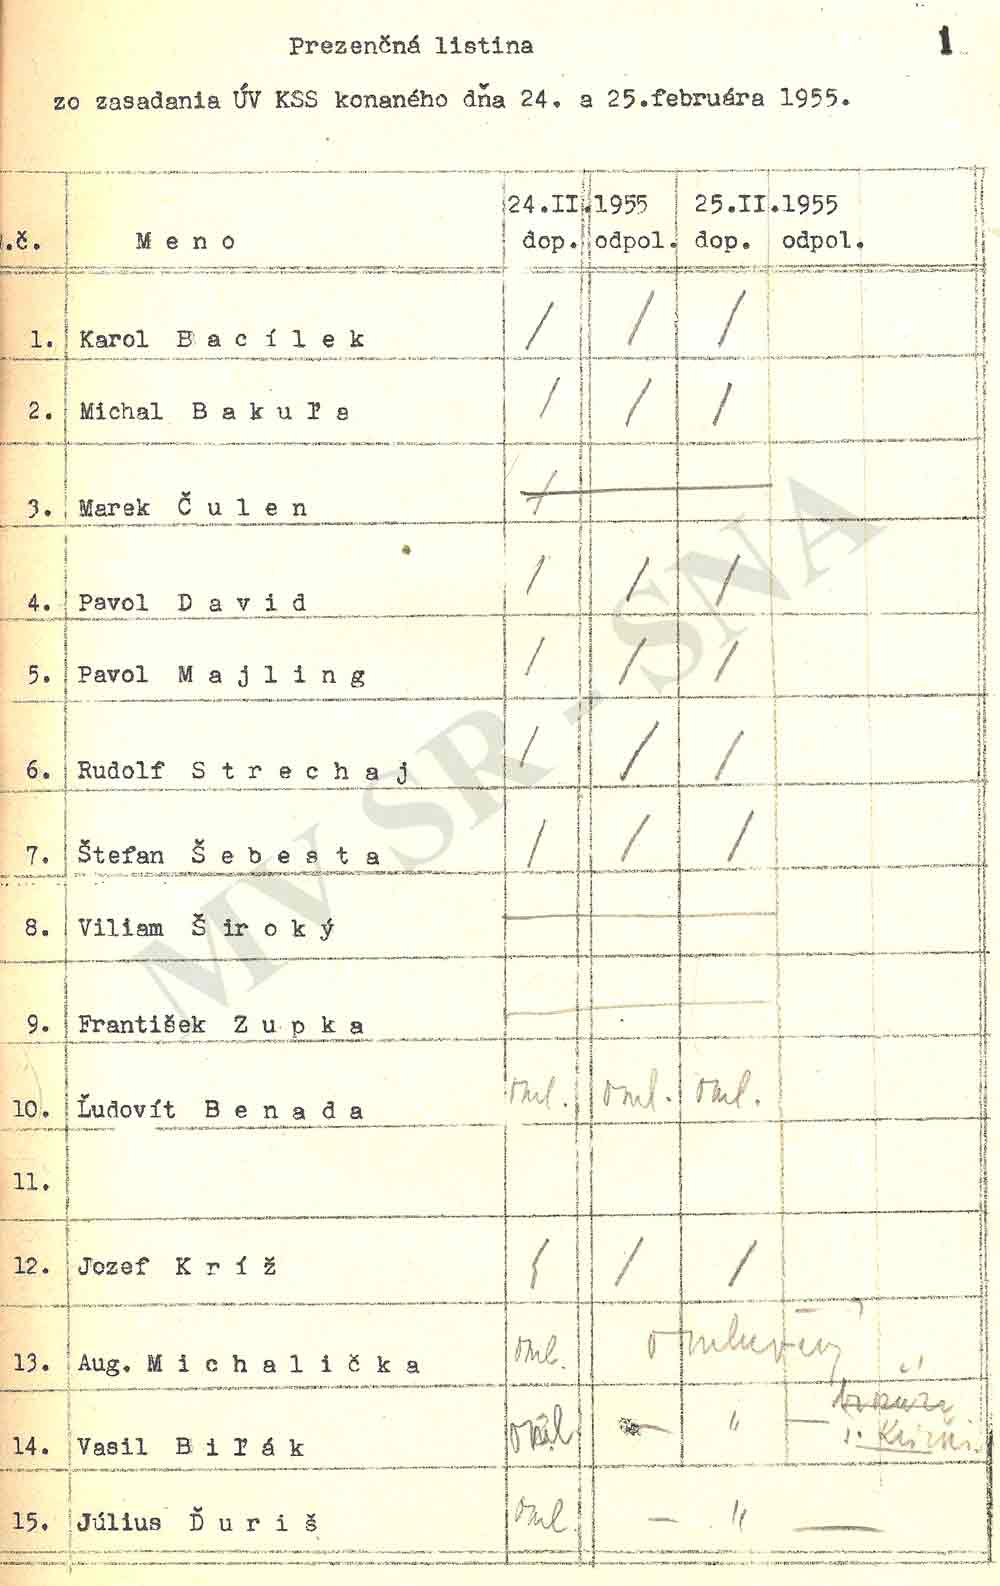 Prezenčná listina
1
zo zasadania ÚV KSS konaného dňa 24. a 25.februára 1955.
24.II.1955 25.II.1955
.č. Meno dop. odpol. dop. odpol.
1. Karol Bacílek / / /
2. Michal Bakuľa / / /
3. Marek Čulen
4. Pavol David / / /
5. Pavol Majling / / /
6. Rudolf Strechaj / / /
7. Štefan Šebesta / / /
8. Viliam Široký
9. František Zupka
10. Ľudovít Benada oml. oml. oml.
11.
12. Jozef Kríž / / /
13. Aug. Michalička oml. omluvený
14. Vasil Biľák oml — " —
15. Július Ďuriš oml. — " —
MV SR - SNA